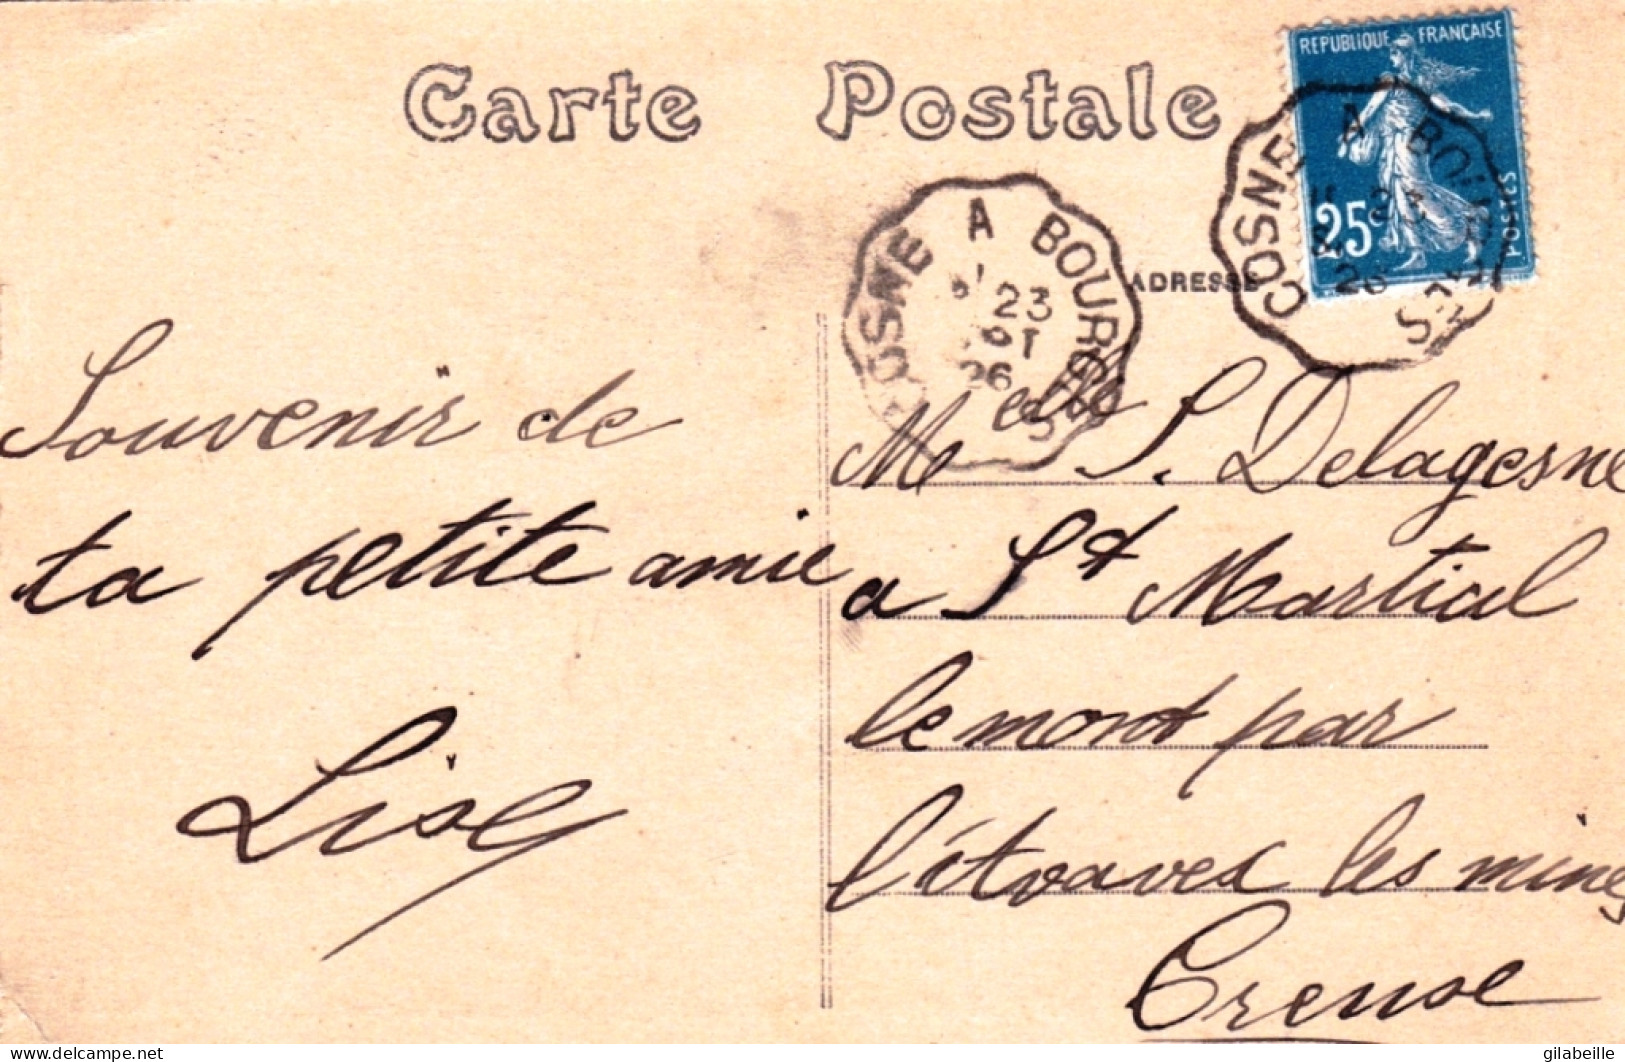 Carte Postale
REPUBLIQUE FRANÇAISE
25c
POSTES
COSNE A BOURGES
23
26
COSNE A BOURGES
23
26
ADRESSE
Souvenir de
ta petite amie
Lise
Melle S. Delagesne
a St Martial
le mont par
Lavaveix les mines
Creuse
delcampe.net
gilabeille